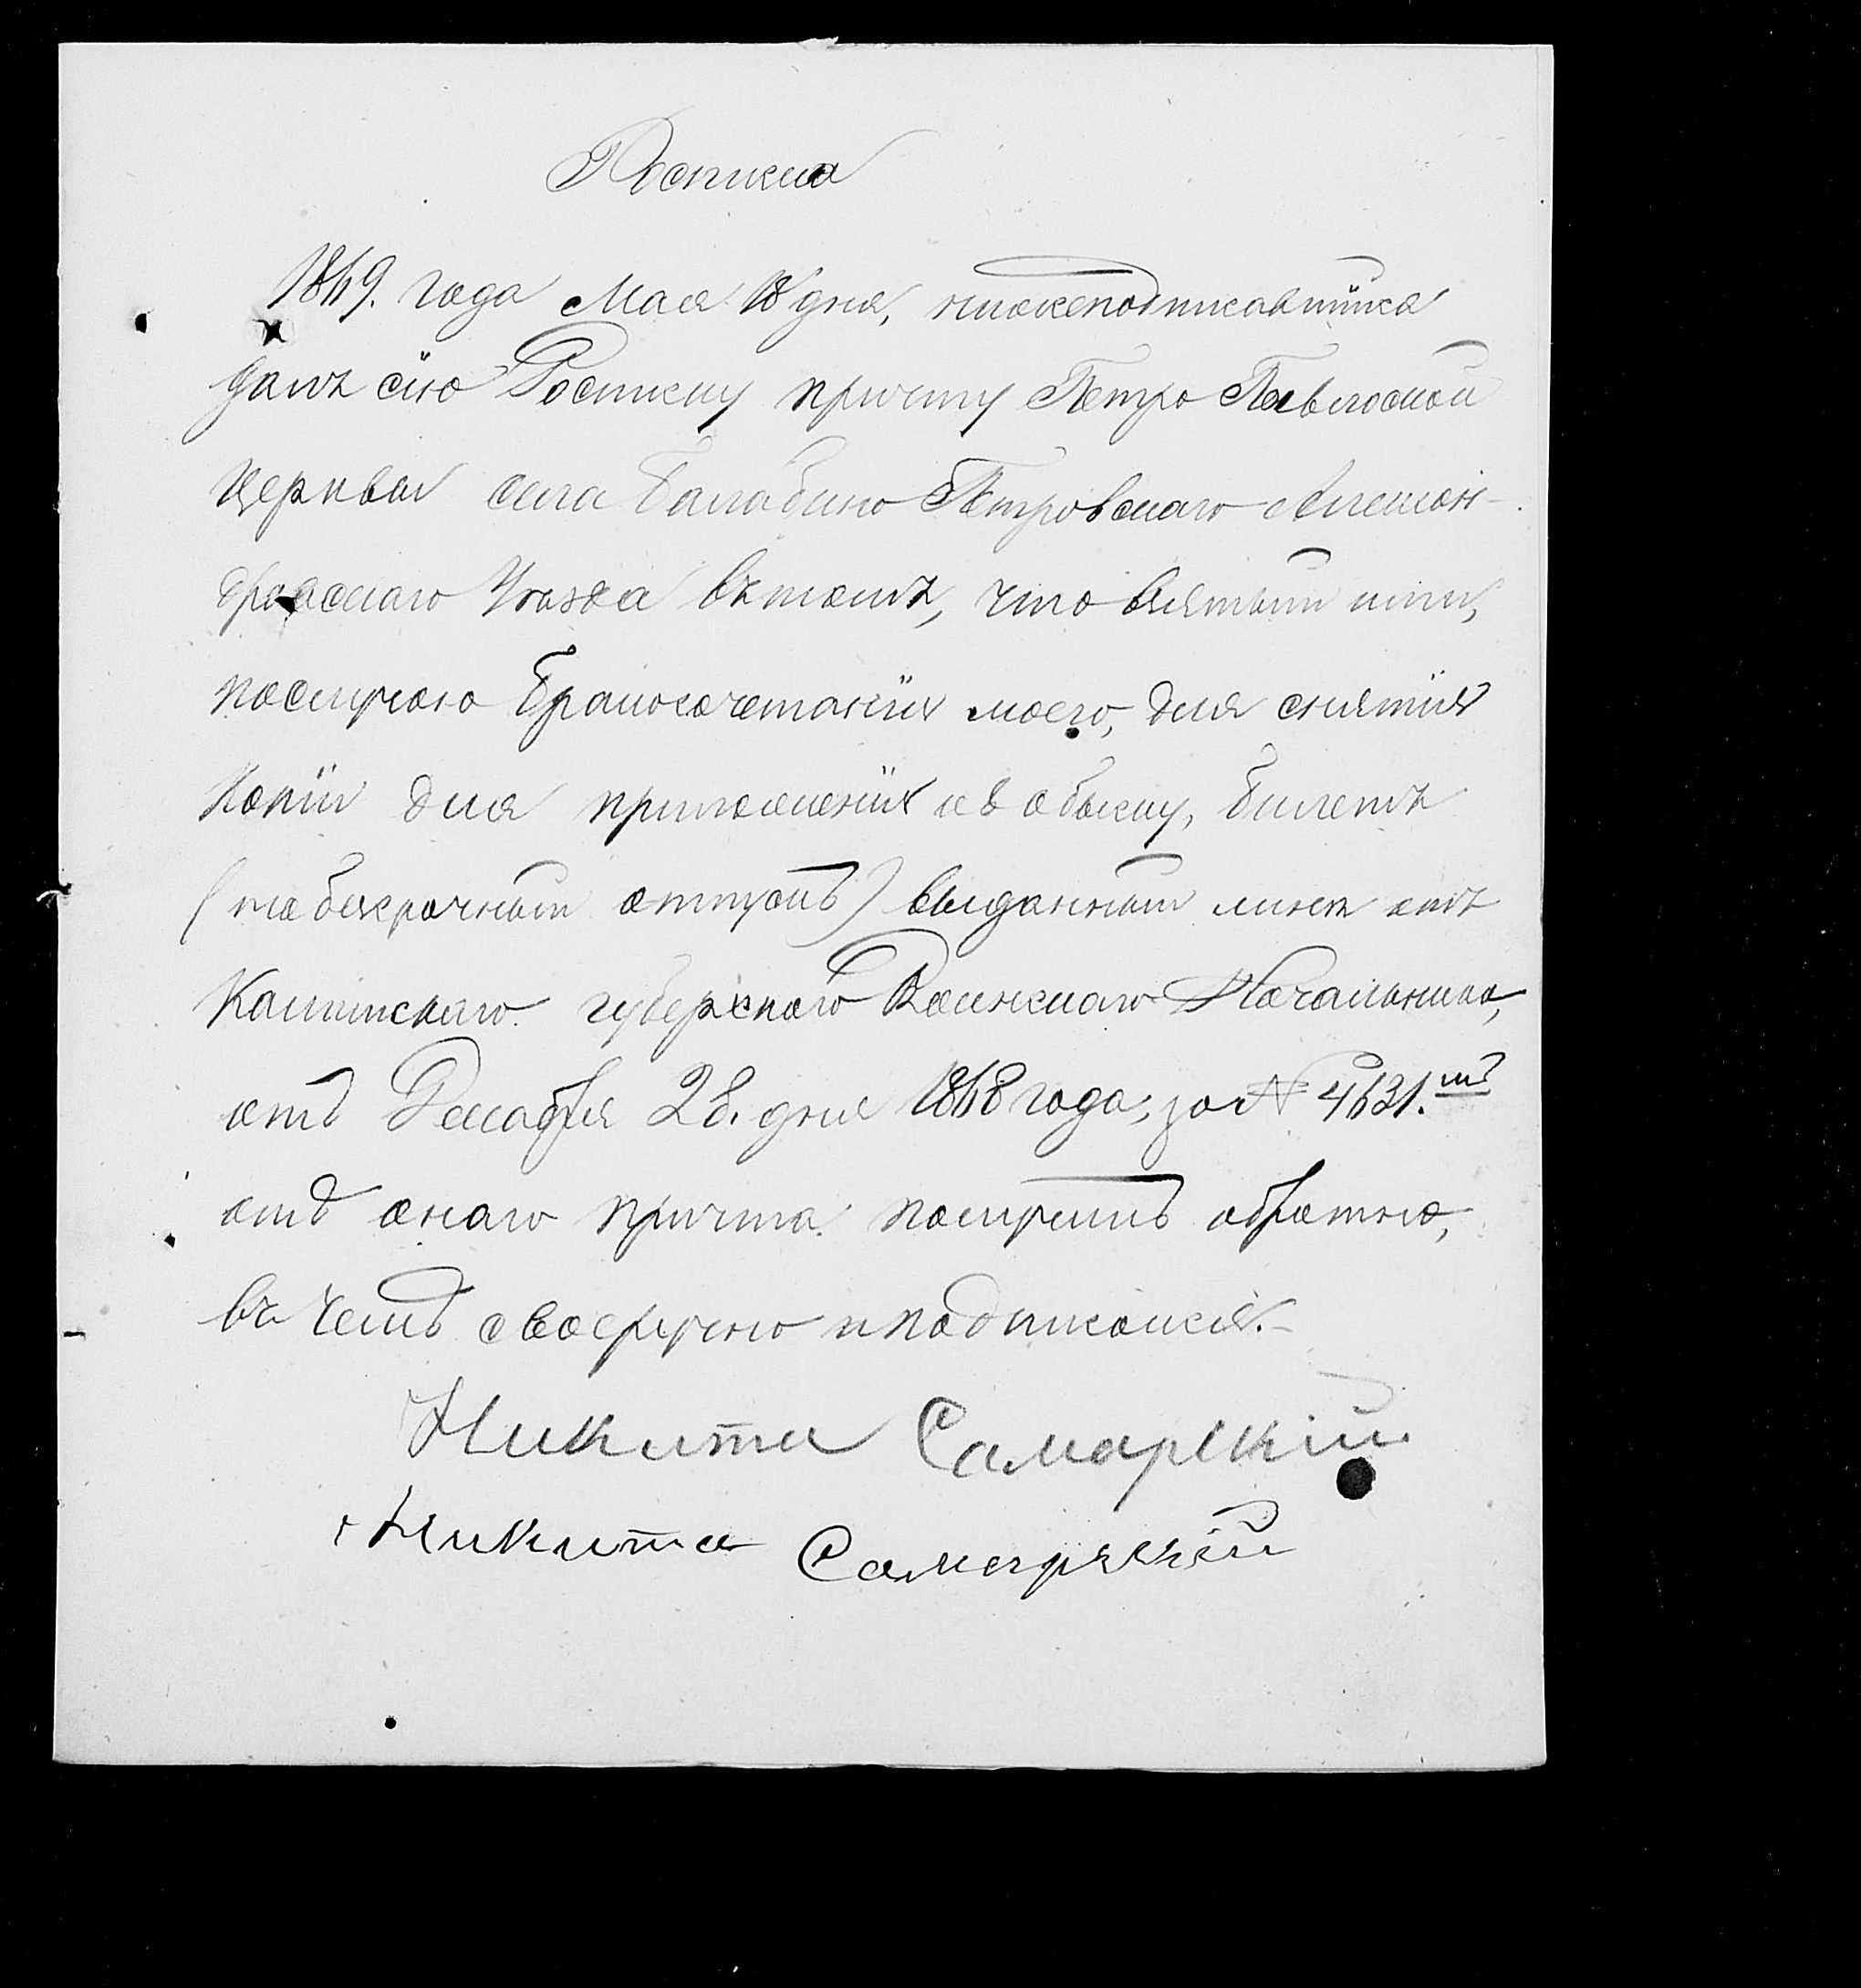 Росписка
1869. года Мая 18 дня, нижеподписавшійся
далъ сію Росписку причту Петро Павловской
церкви села Балабино Петровскаго Алексан-
дровскаго Уѣзда въ томъ, что взятый ими,
послучаю бракосочетанія моего, для снятія
копіи для приложенія къ обыску, билетъ
(на безсрочный отпускъ) выданный мнѣ отъ
губернскаго Воинскаго Начальника,
отъ Декабря 28. дня 1868 года, за № 4631.мъ
отъ онаго причта получилъ обратно,
въ чемъ своеручно и подписался.-
Никита Самарскій
Никита Самарскій